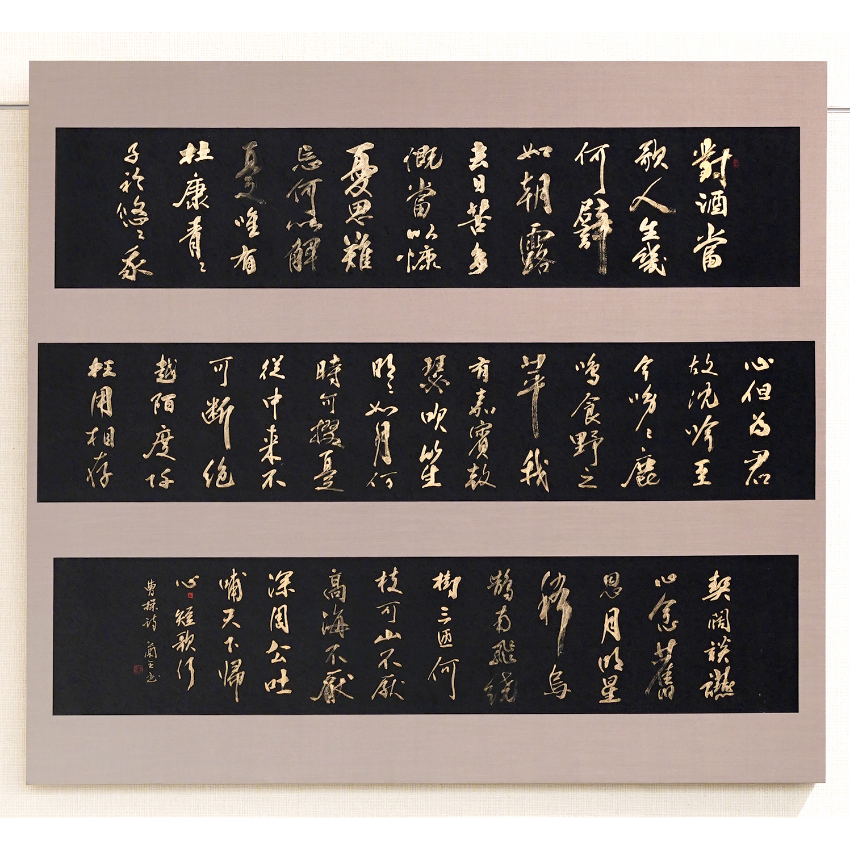 對酒當
歌人生幾
何譬
如朝露
去日苦多
慨當以慷
憂思難
忘何以解
憂唯有
杜康青〻
子衿悠〻我
心但為君
故沈吟至
今呦〻鹿
鳴食野之
苹我
有嘉賓鼓
瑟吹笙
明〻如月何
時可掇憂
從中来不
可断絕
越陌度阡
枉用相存
契闊談讌
心念舊
恩月明星
稀烏
鵲南飛繞
樹三匝何
枝可山不厭
高海不厭
深周公吐
哺天下歸
心 短歌行
曹操詩